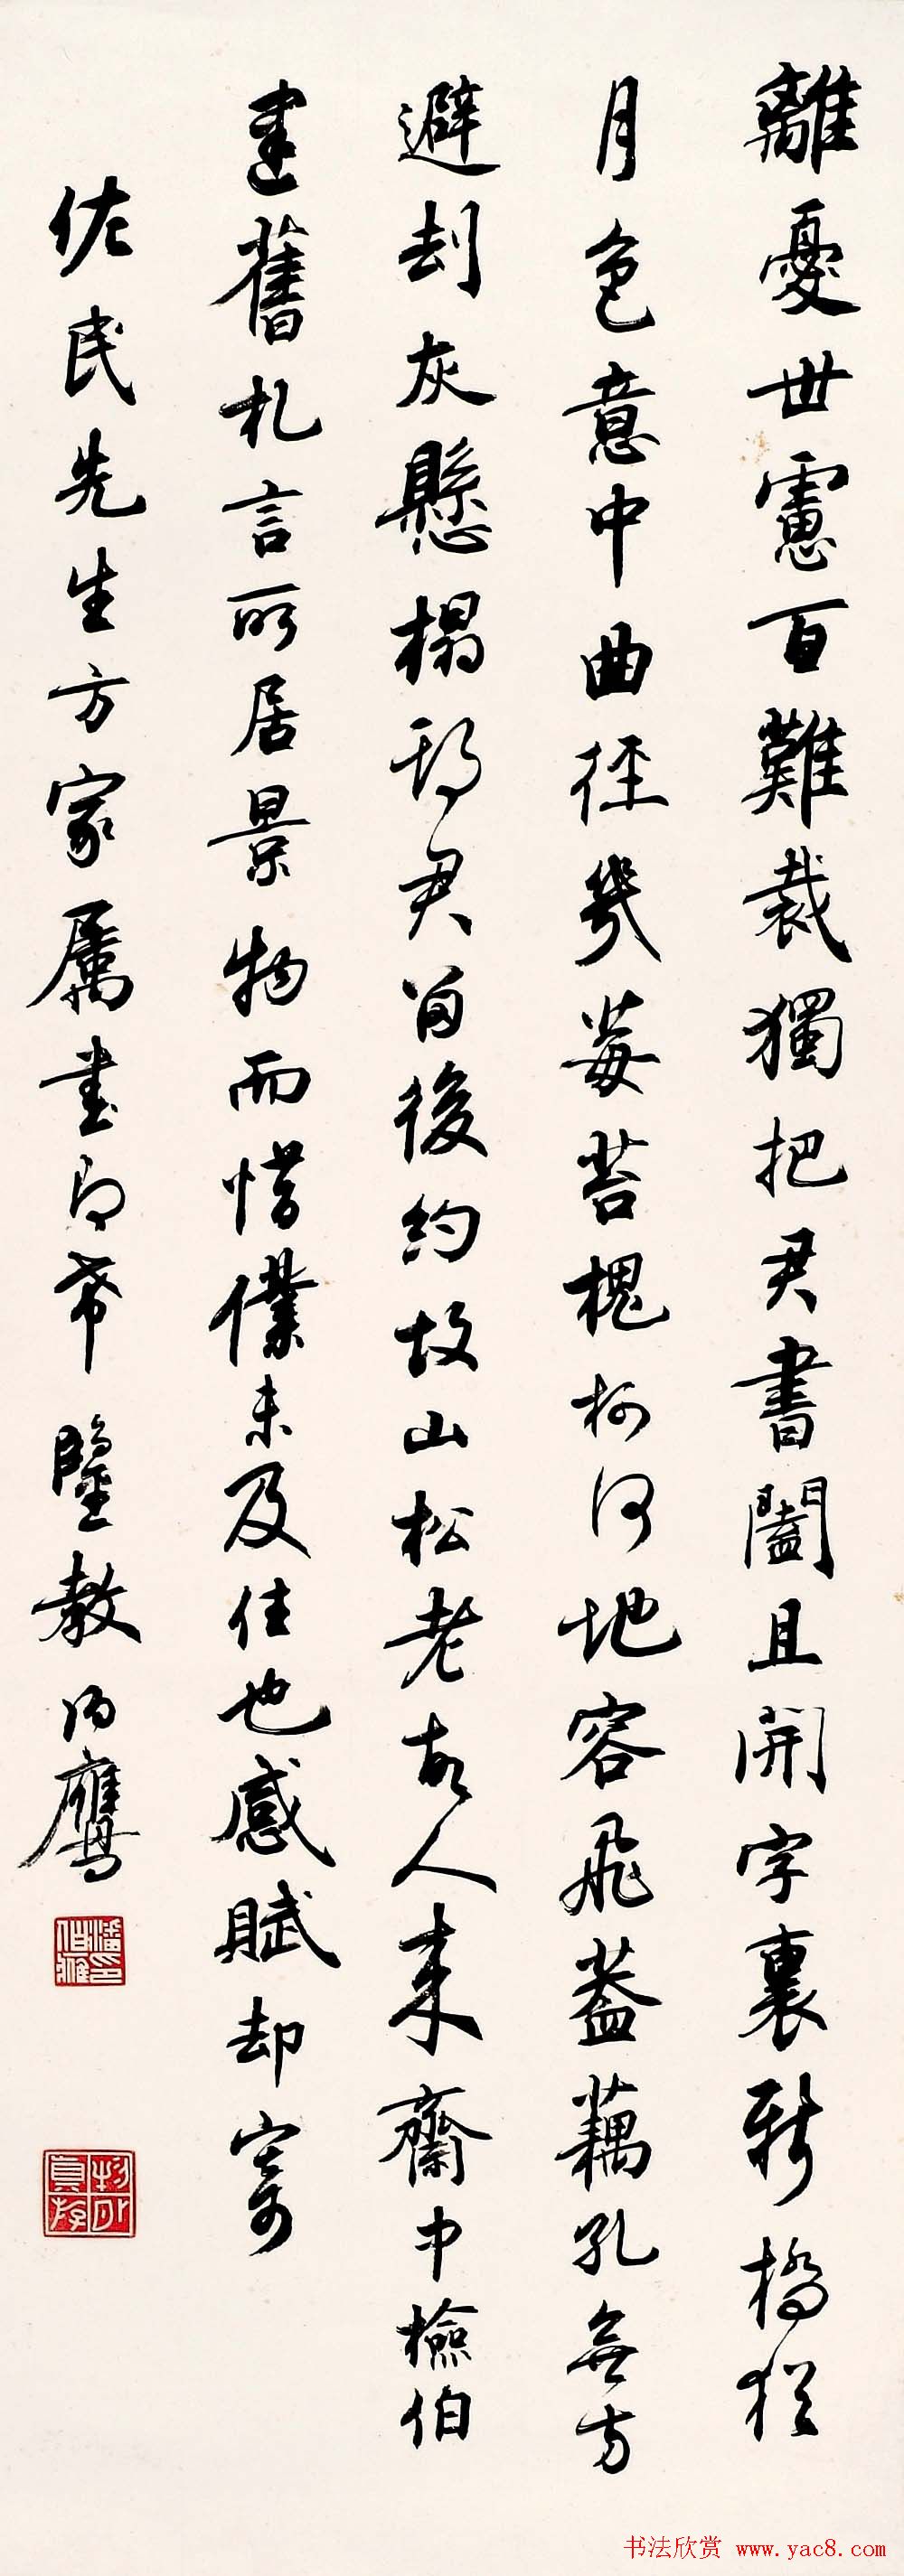 離憂世慮百難裁獨把君書闔且開字裏新橋猶
月色意中曲徑幾莓苔槐柯何地容飛蓋藕孔無方
避刦灰懸榻爲君留後約故山松老故人來齋中檢伯
建舊札言所居景物而惜僕未及住也感賦却寄
佐民先生方家屬書即希鑒教伯鷹
潘伯鷹印
书法欣赏 www.yac8.com